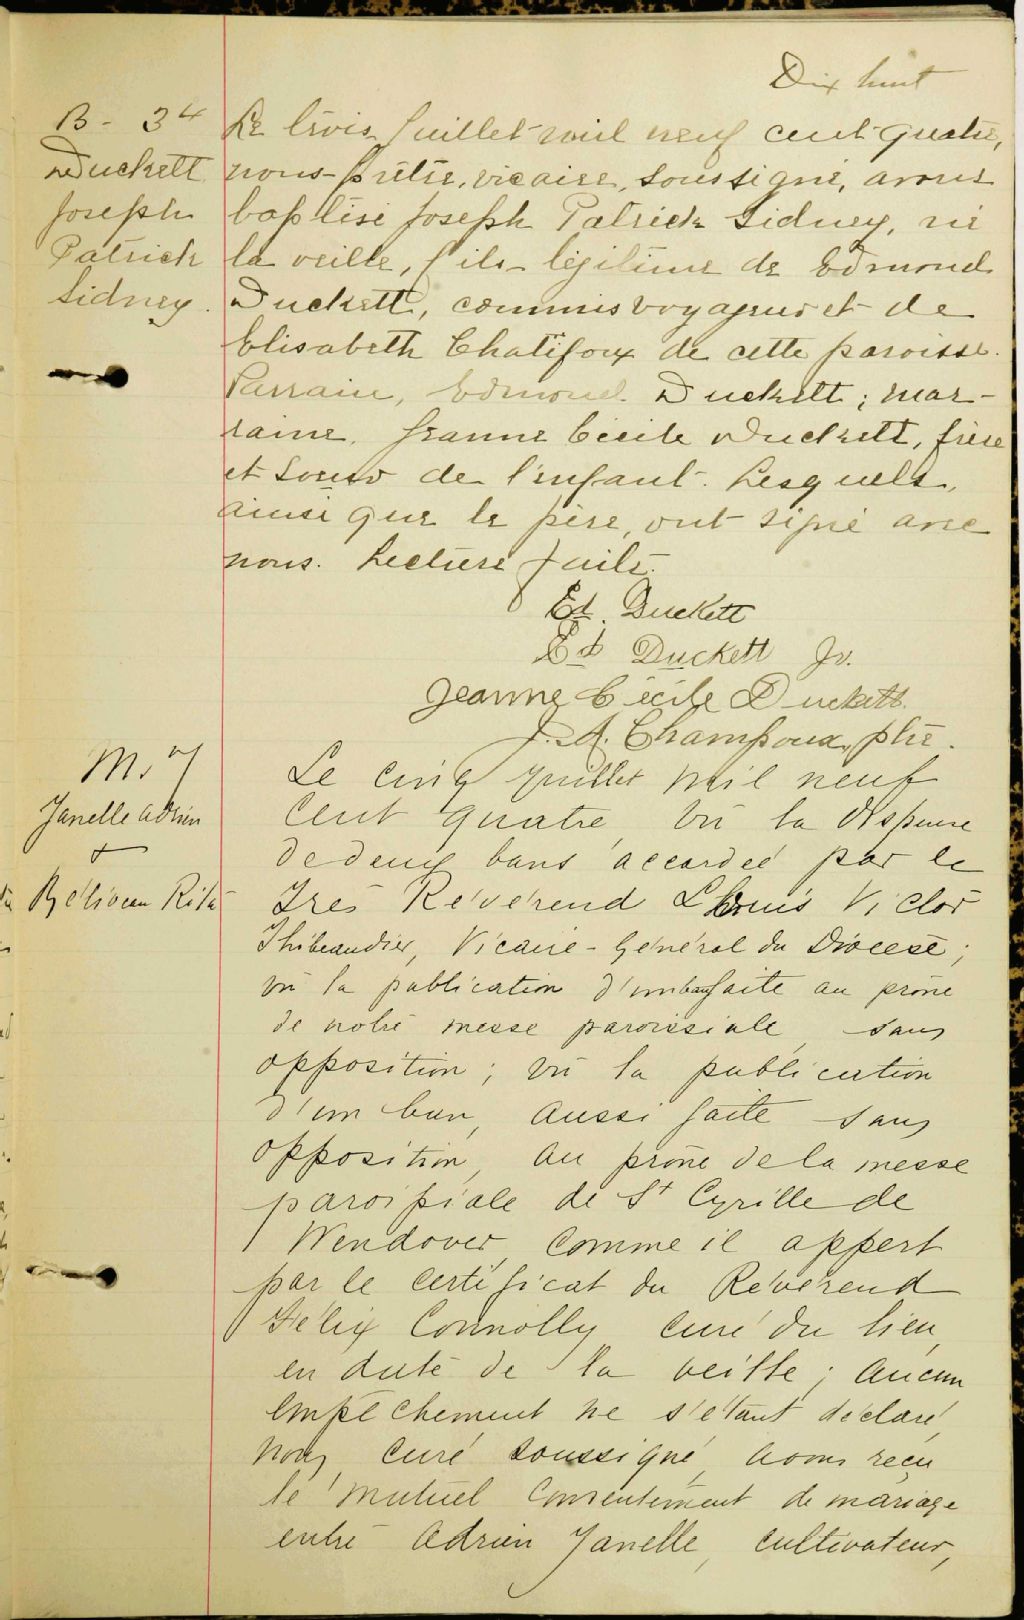 Dix huit
B - 34
Duckett
Joseph
Patrick
Sidney.
Le trois Juillet mil neuf cent quatre,
nous prêtre, vicaire, soussigné, avons
baptisé Joseph Patrick Sidney, né
la veille, fils légitime de Edmond
Duckett, commis voyageur et de
Elisabeth Chatifoux de cette paroisse.
Parrain, Edmond Duckett; mar-
raine, Jeanne Cécile Duckett, frère
et soeur de l'enfant. Lesquels,
ainsi que le père, ont signé avec
nous. Lecture faite.
Ed. Duckett
Ed Duckett Jr.
Jeanne Cécile Duckett
J. A. Champoux, ptre.
M. 7
Janelle Adrien
&
Béliveau Rita
Le cinq juillet mil neuf
cent quatre, vu la dispense
de deux bans accordée par le
Très Révérend Louis Victor
Thibaudier, Vicaire-Général du Diocèse;
vu la publication d'un ban faite au prône
de notre messe paroissiale, sans
opposition; vu la publication
d'un ban, aussi faite sans
opposition, au prône de la messe
paroissiale de St Cyrille de
Wendover comme il appert
par le certificat du Révérend
Félix Connolly curé du lieu,
en date de la veille; aucun
empêchement ne s'étant déclaré,
nous, curé soussigné, avons reçu
le mutuel consentement de mariage
entre Adrien Janelle, cultivateur,